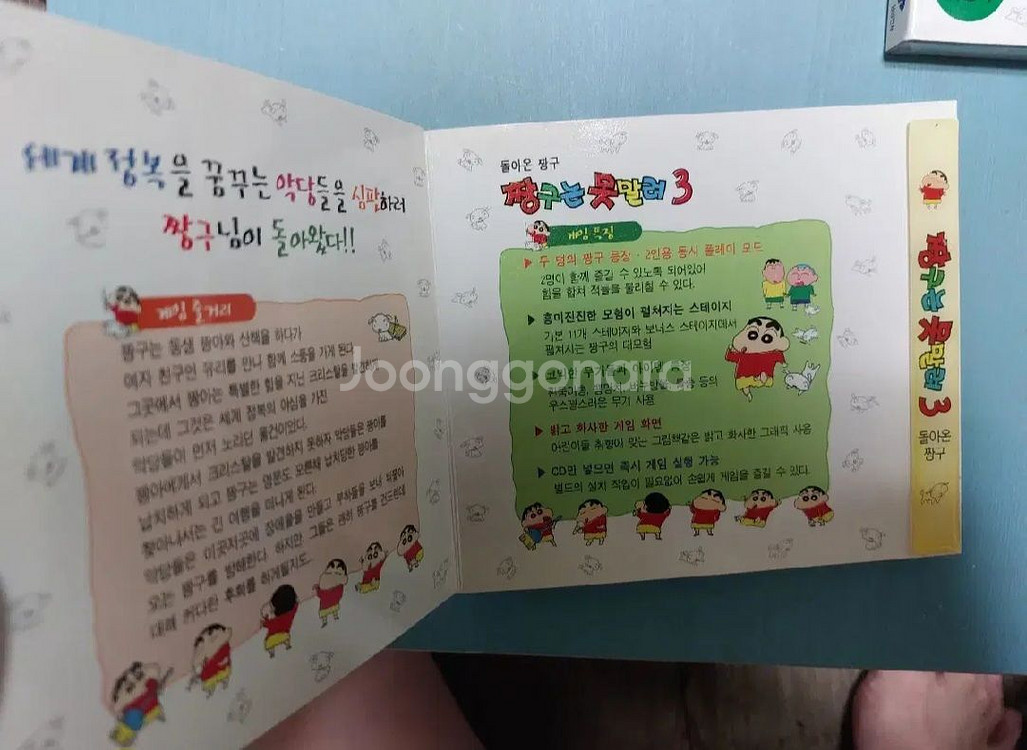 세계 정복을 꿈꾸는 악당들을 심판하러
짱구님이 돌아왔다!!
게임 줄거리
짱구는 동생 짱아와 산책을 하다가
여자 친구인 유리를 만나 함께 소풍을 가게 된다.
그곳에서 짱아는 특별한 힘을 지닌 크리스탈을 발견하게
되는데 그것은 세계 정복의 야심을 가진
악당들이 먼저 노리던 물건이었다.
짱아에게서 크리스탈을 발견하지 못하자 악당들은 짱아를
납치하게 되고 짱구는 영문도 모른채 납치당한 짱아를
찾아나서는 긴 여행을 떠나게 된다.
악당들은 이곳저곳에 장애물을 만들고 부하들을 보내 찾아
오는 짱구를 방해한다. 하지만 그들은 괜히 짱구를 건드린데
대해 커다란 후회를 하게될지도..
돌아온 짱구
짱구는 못말려 3
게임 특징
▶ 두 명의 짱구 등장 · 2인용 동시 플레이 모드
2명이 함께 즐길 수 있도록 되어있어
힘을 합쳐 적들을 물리칠 수 있다.
▶ 흥미진진한 모험이 펼쳐지는 스테이지
기본 11개 스테이지와 보너스 스테이지에서
펼쳐지는 짱구의 대모험
등의
우스꽝스러운 무기 사용
▶ 밝고 화사한 게임 화면
어린이들 취향에 맞는 그림책같은 밝고 화사한 그래픽 사용
▶ CD만 넣으면 즉시 게임 실행 가능
별도의 설치 작업이 필요없어 손쉽게 게임을 즐길 수 있다.
짱구는 못말려 3
돌아온
짱구
Joonggonara